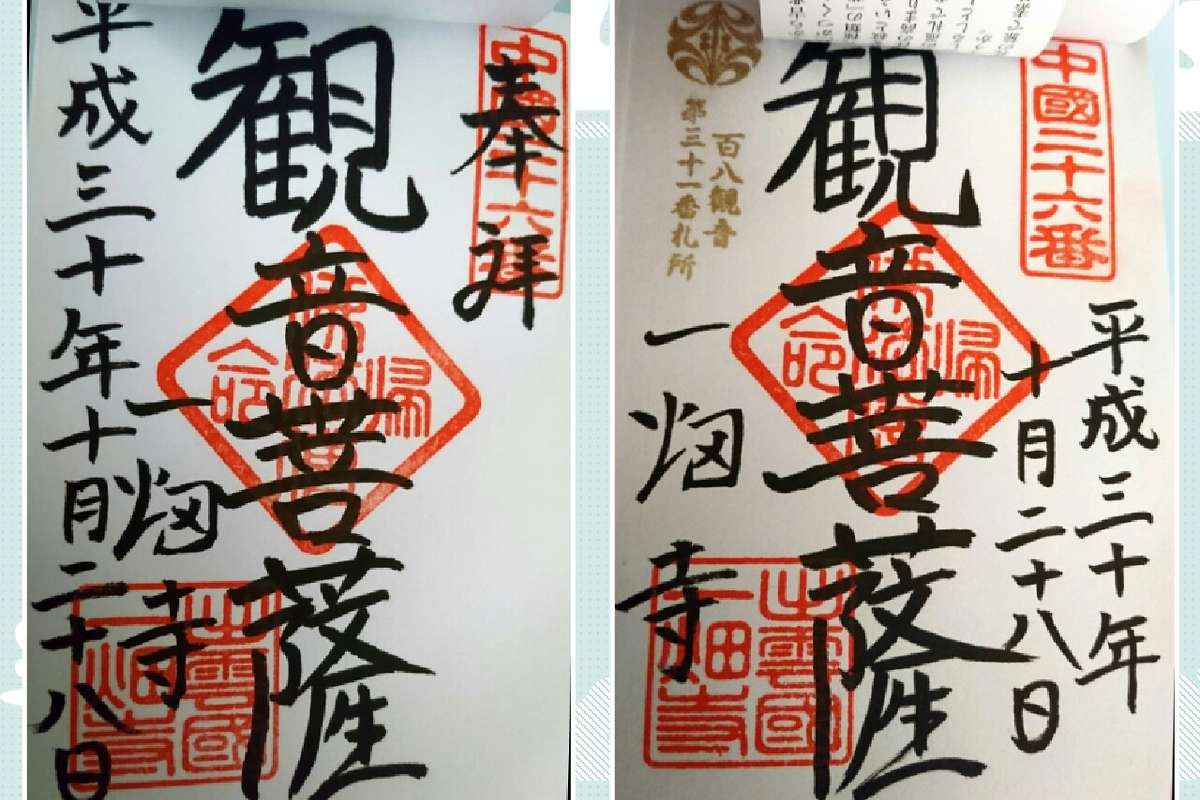 奉拝
中國二十六番
観音菩薩
帰
命
一畑寺
出雲國
一畑寺
平成三十年十月二十八日
中國二十六番
平成三十年
十月二十八日
観音菩薩
帰
命
百八観音
第三十一番札所
一畑寺
出雲國
一畑寺